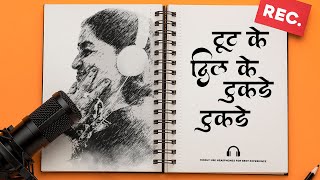 REC.
टूट के
दिल के
टुकडे
टुकडे